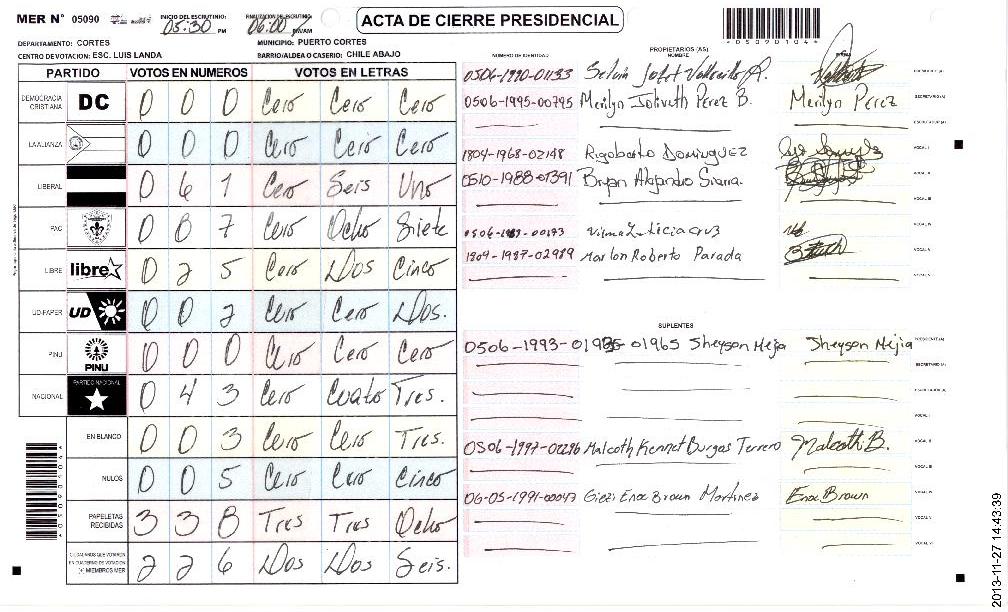 MER N° 05090 INICIO DEL ESCRUTINIO: 05:30 PM FINALIZACION ESCRUTINIO: 06:00 PM/AM
ACTA DE CIERRE PRESIDENCIAL
*05090104*
DEPARTAMENTO: CORTES MUNICIPIO: PUERTO CORTES
CENTRO DE VOTACION: ESC. LUIS LANDA BARRIO/ALDEA O CASERIO: CHILE ABAJO
PARTIDO VOTOS EN NUMEROS VOTOS EN LETRAS
DEMOCRACIA CRISTIANA DC 0 0 0 Cero Cero Cero
LA ALIANZA 0 0 0 Cero Cero Cero
LIBERAL 0 6 1 Cero Seis Uno
PAC 0 8 7 Cero Ocho Siete
LIBRE libre 0 2 5 Cero Dos Cinco
UD-FAPER UD 0 0 2 Cero Cero Dos.
PINU PINU 0 0 0 Cero Cero Cero
NACIONAL PARTIDO NACIONAL 0 4 3 Cero Cuato Tres.
EN BLANCO 0 0 3 Cero Cero Tres.
NULOS 0 0 5 Cero Cero Cinco
PAPELETAS RECIBIDAS 3 3 8 Tres Tres Ocho
CIUDADANOS QUE VOTARON EN CUADERNO DE VOTACION + MIEMBROS MER 2 2 6 Dos Dos Seis.
PROPIETARIOS (AS)
NUMERO DE IDENTIDAD NOMBRE FIRMA
0506-1990-01133 PRESIDENTE (A)
0506-1995-00795 Merilyn Perez B. Merilyn Perez SECRETARIO (A)
ESCRUTADOR (A)
1804-1968-02148 Rigoberto Dominguez VOCAL I
0510-1988-01391 Bryan Alejandro Sierra. VOCAL II
VOCAL III
Vilma Leticia Cruz VOCAL IV
1804-1987-02989 Marlon Roberto Parada VOCAL V
SUPLENTES
0506-1993-01965 Sheyson Mejia Sheyson Mejia PRESIDENTE (A)
SECRETARIO (A)
ESCRUTADOR (A)
VOCAL I
0506-1997-02296 Malcoth Kennet Burgos Terrero Malcoth B. VOCAL II
VOCAL III
06-05-1991-00047 Ena Brown Martinez Ena Brown VOCAL IV
VOCAL V
VOCAL VI
2013-11-27 14:43:39